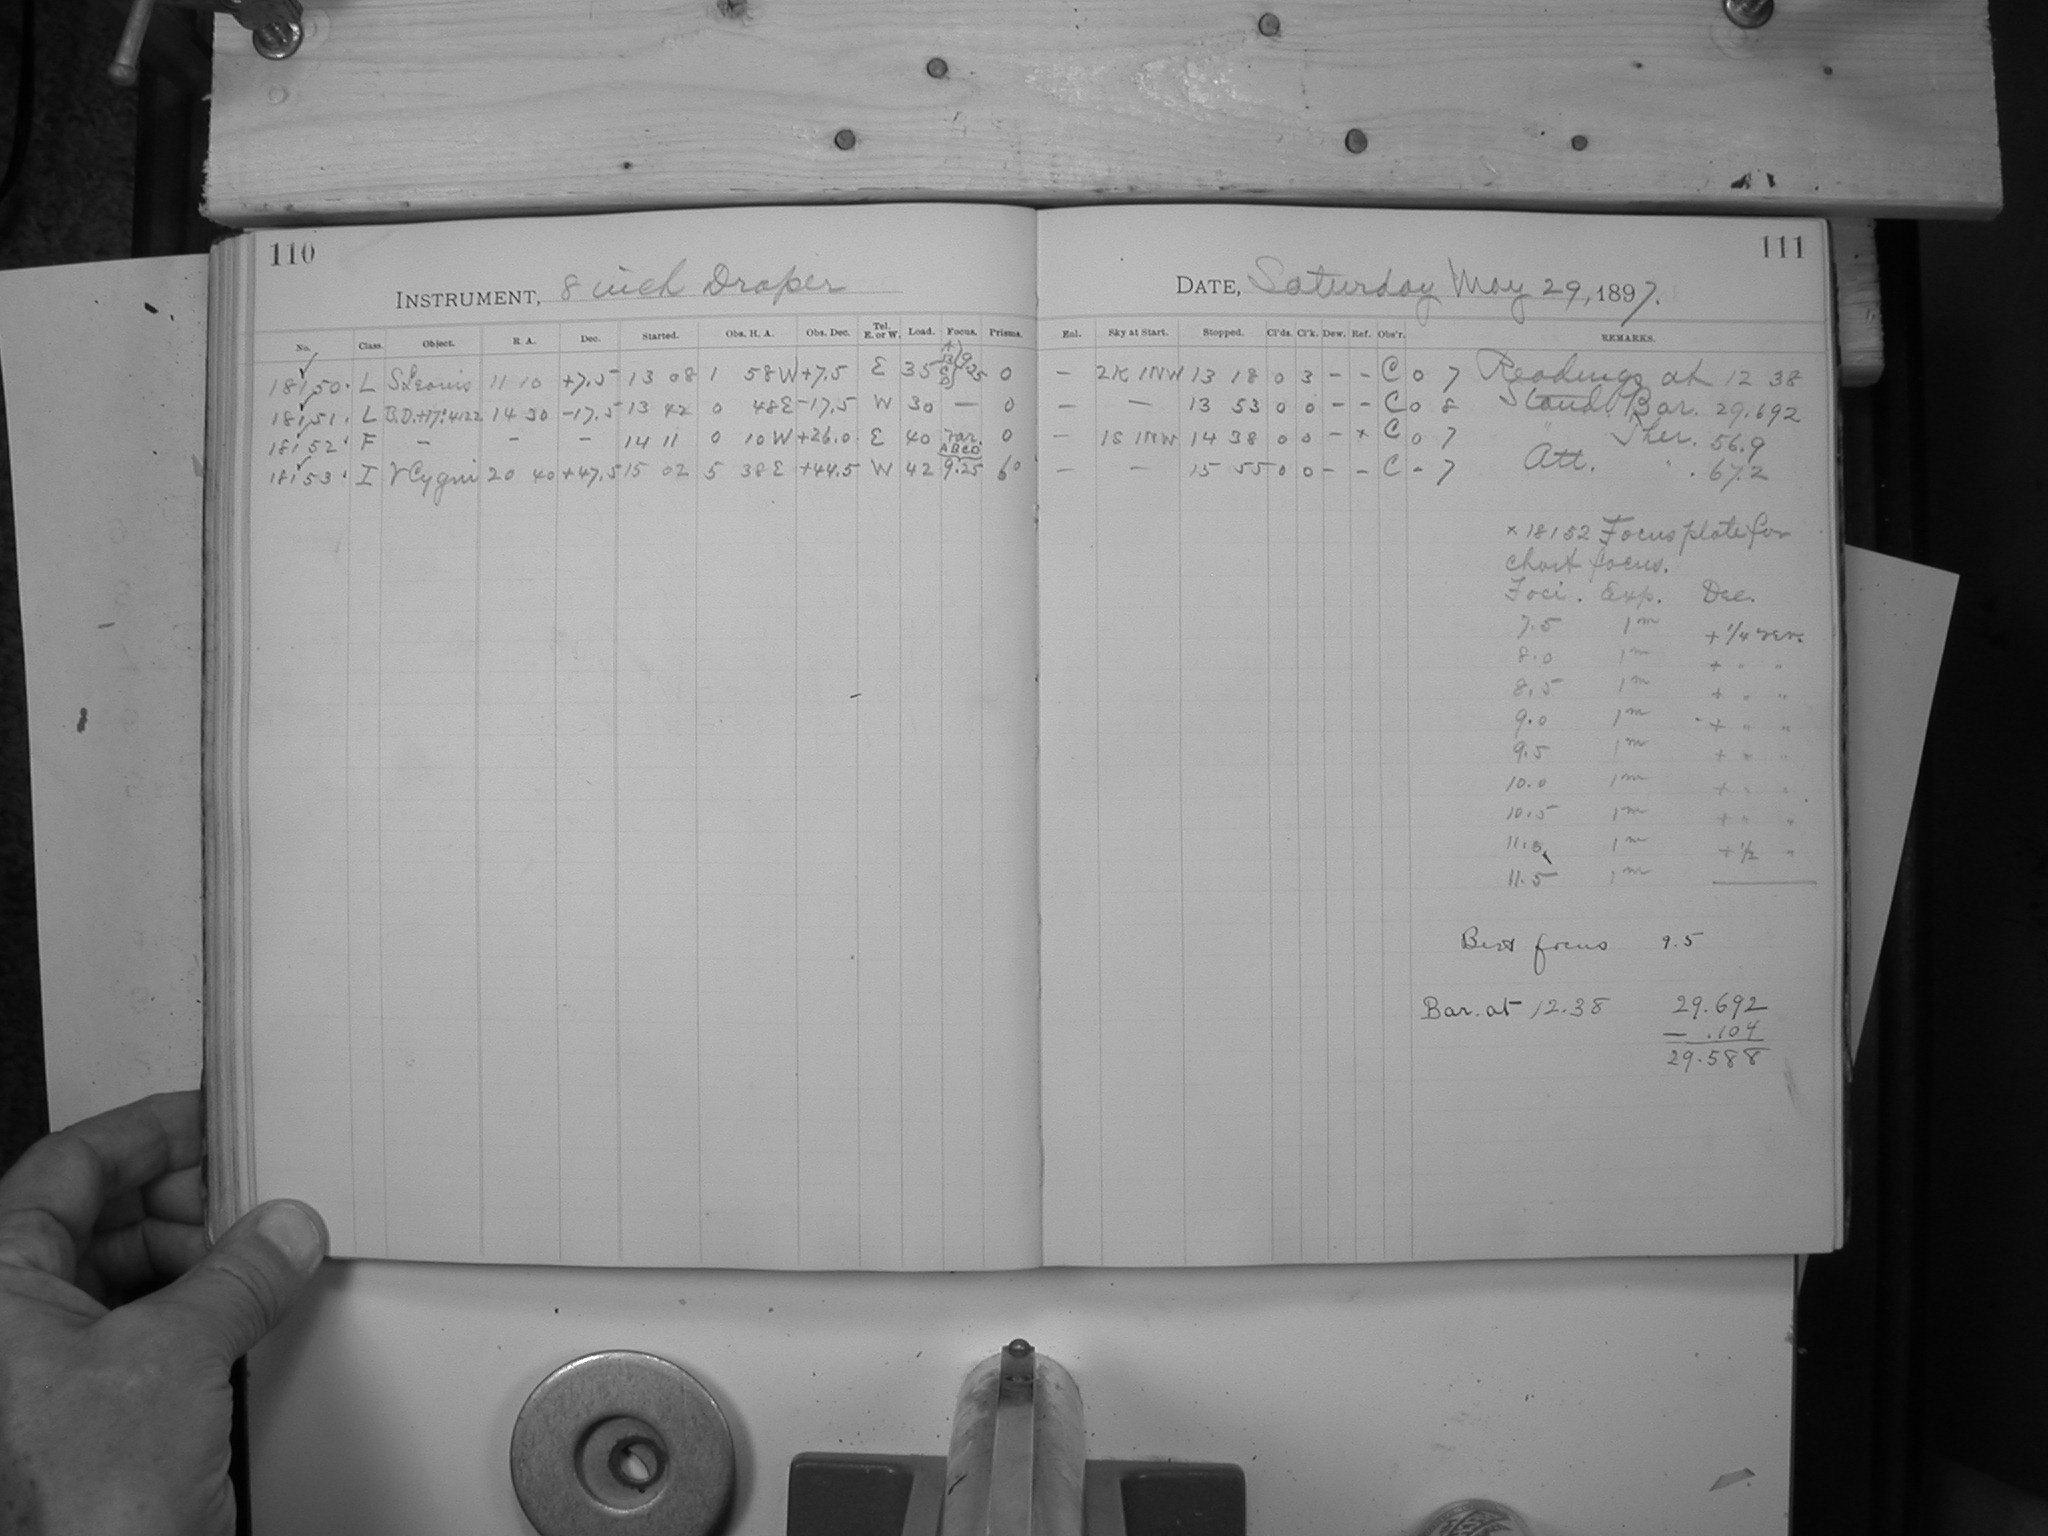 110
111
INSTRUMENT, 8 inch Draper
DATE, Saturday May 29, 1897.
No. Class. Object. R. A. Dec. Started. Obs. H. A. Obs. Dec. Tel. E. or W. Load. Focus. Prisms. Enl. Sky at Start. Stopped. Cl'ds. Cl'k. Dew. Ref. Obs'r. REMARKS.
18150. L S Leonis 11 10 +7.5 13 08 1 58 W +7.5 E 35 A B C D 9.25 0 – 2K 1NW 13 18 0 3 – – C 0 7 Readings at 12 38
18151. L 14 30 -17.5 13 42 0 48 E -17.5 W 30 — 0 – – 13 53 0 0 – – C 0 8 Stand. Bar. 29.692
18152. F – – – 14 11 0 10 W +26.0 E 40 Var. ABCD 0 – 1S 1NW 14 38 0 0 – × C 0 7 " Ther. 56.9
18153. I γ Cygni 20 40 +47.5 15 02 5 38 E +44.5 W 42 9.25 60 – – 15 55 0 0 – – C – 7 Att. " . 67.2
× 18152 Focus plate for
chart focus.
Foci. Exp. Dec.
7.5 1m + 1/4 rev.
8.0 1m + " "
8.5 1m + " "
9.0 1m + " "
9.5 1m + " "
10.0 1m + " "
10.5 1m + " "
11.0 1m + 1/2 "
11.5 1m ——
Best focus 9.5
Bar. at 12.38 29.692
— .104
29.588